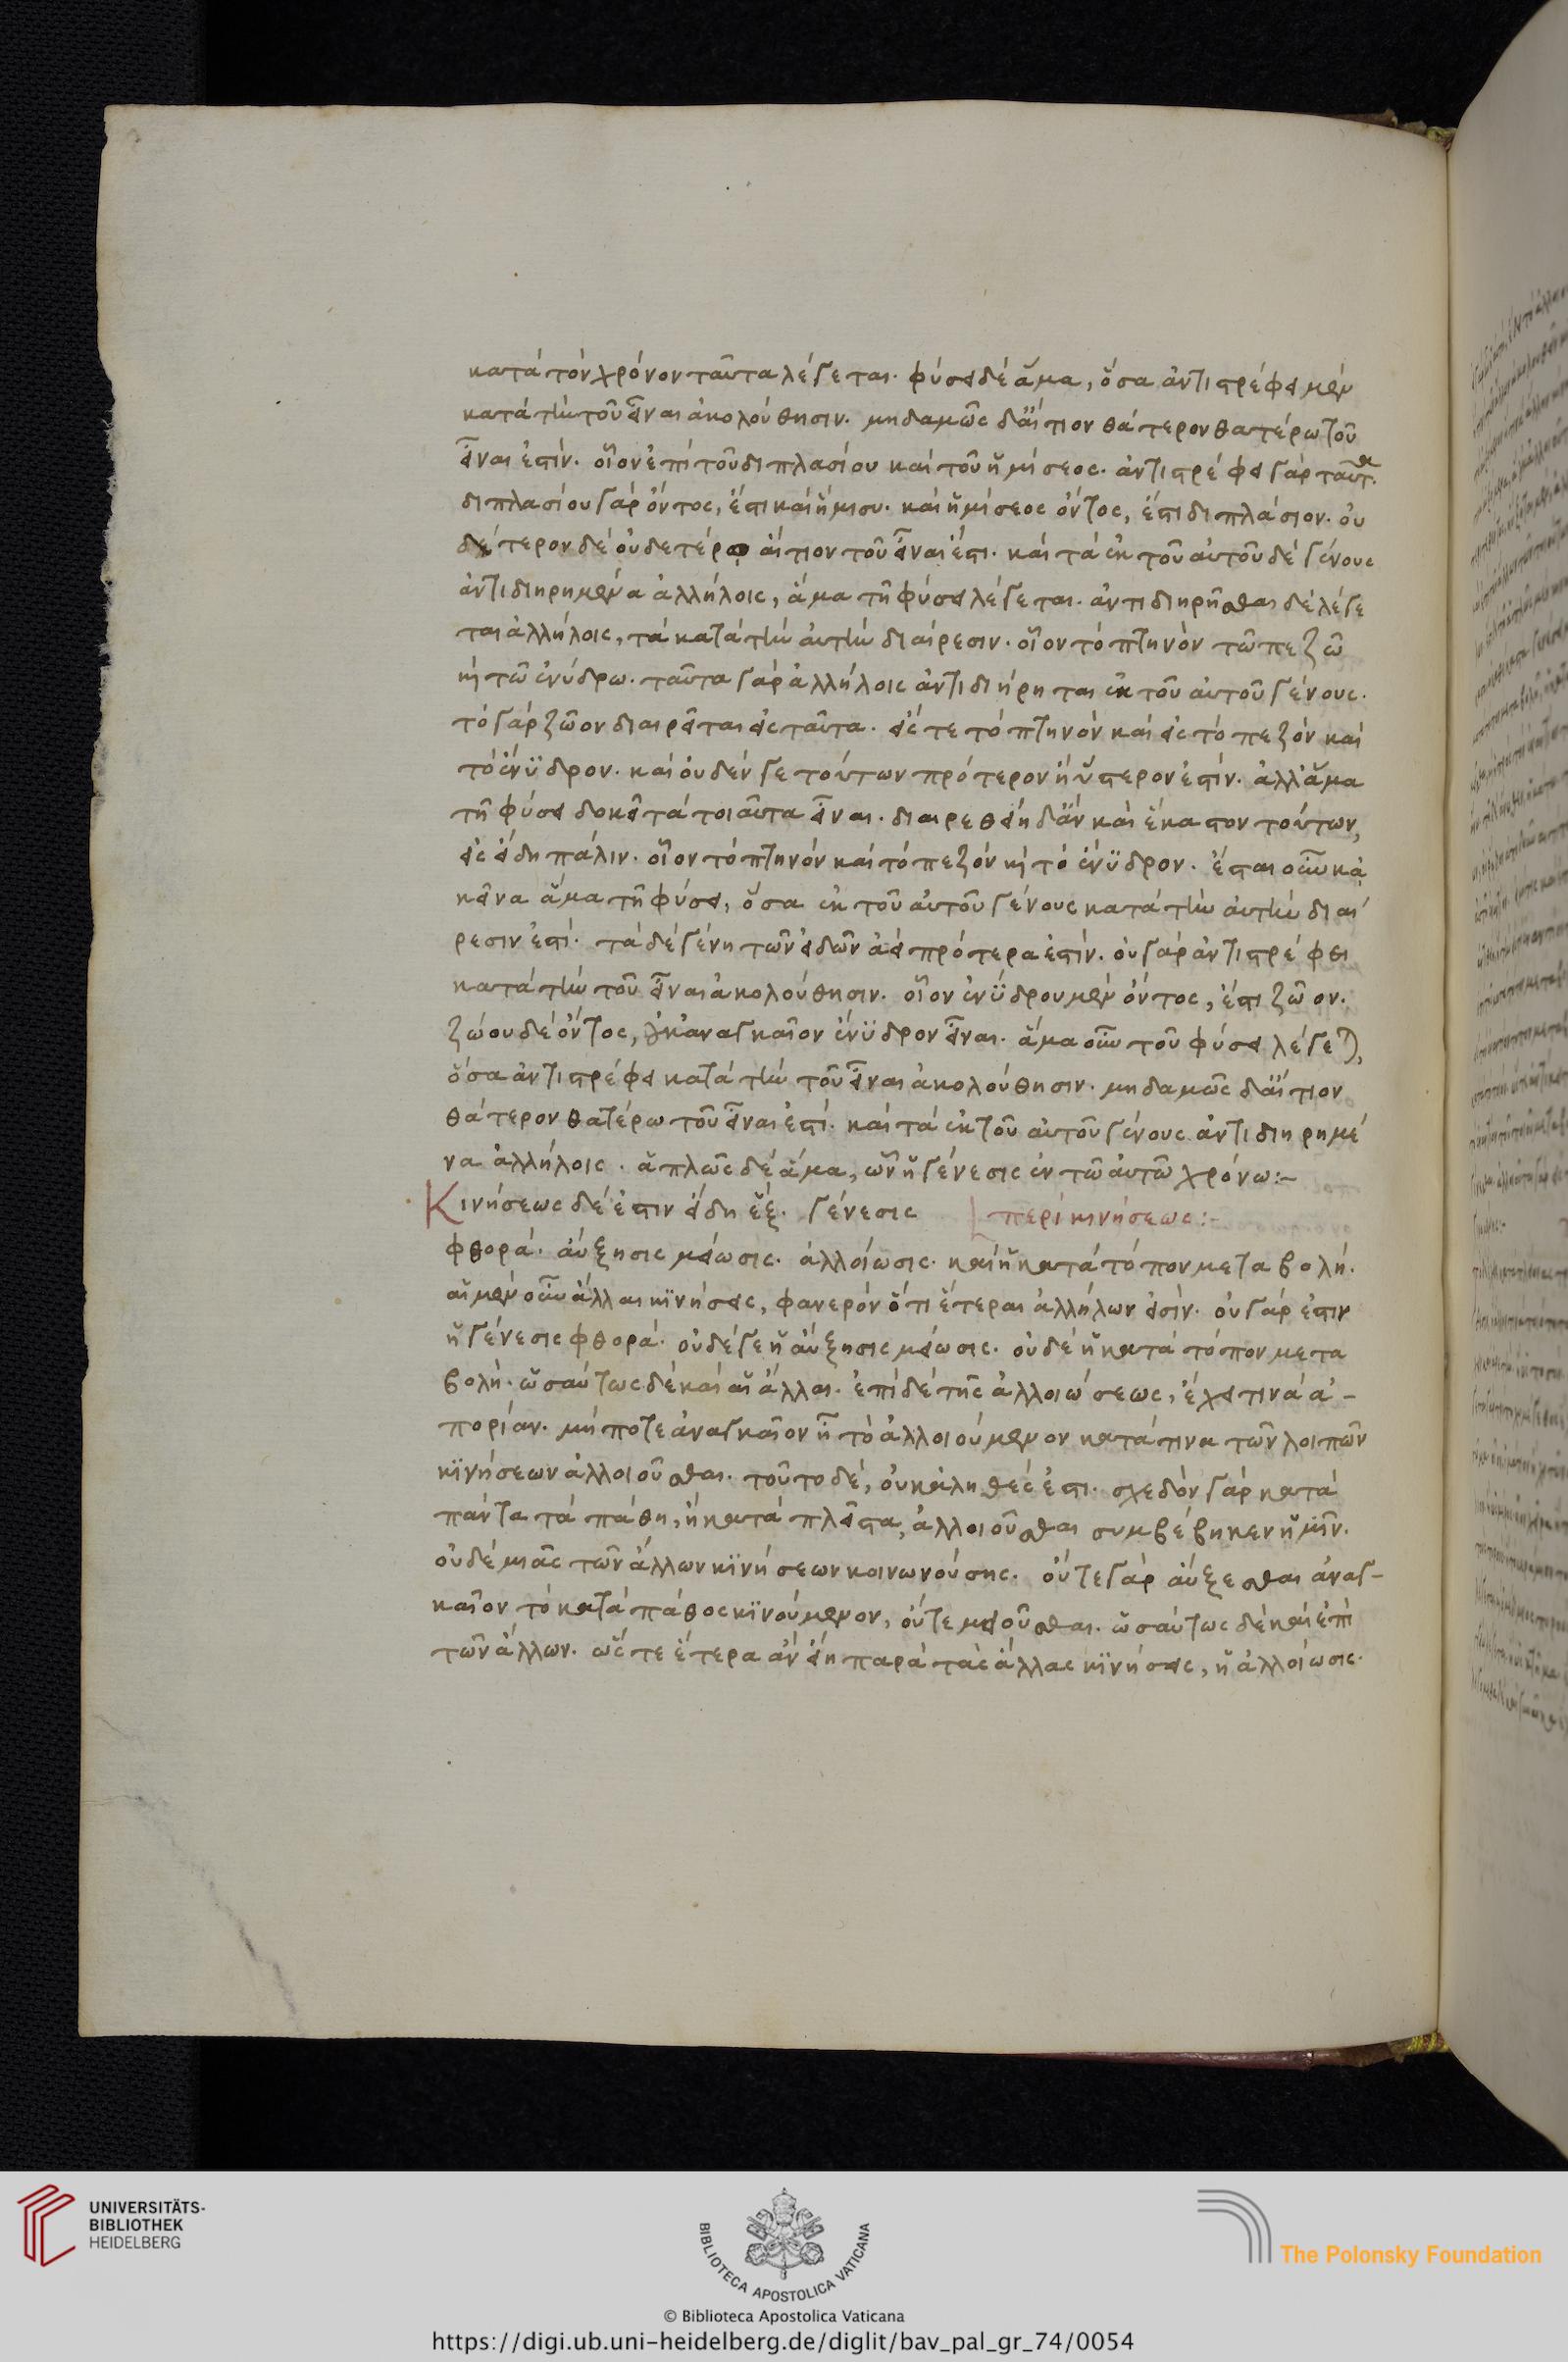 κατά τόν χρόνον ταῦτα λέγεται. φύσει δέ ἅμα, ὅσα ἀντιστρέφει μέν
κατά τήν τοῦ εἶναι ἀκολούθησιν. μηδαμῶς δ' αἴτιον θάτερον θατέρω τοῦ
εἶναι ἐστίν. οἷον ἐπί τοῦ διπλασίου καί τοῦ ἡμίσεος. ἀντιστρέφει γάρ ταῦτα.
διπλασίου γάρ ὄντος, ἔστι καί ἥμισυ. καί ἡμίσεος ὄντος, ἔστι διπλάσιον. οὐ
δέτερον δέ οὐδετέρω αἴτιον τοῦ εἶναί ἐστι. καί τά ἐκ τοῦ αὐτοῦ δέ γένους
ἀντιδιηρημένα ἀλλήλοις, ἅμα τῇ φύσει λέγεται. ἀντιδιηρῆσθαι δέ λέγε
ται ἀλλήλοις, τά κατά τήν αὐτήν διαίρεσιν. οἷον τό πτηνόν τῶ πεζῶ
καί τῶ ἐνύδρω. ταῦτα γάρ ἀλλήλοις ἀντιδιήρηται ἐκ τοῦ αὐτοῦ γένους.
τό γάρ ζῶον διαιρεῖται εἰς ταῦτα. εἴς τε τό πτηνόν καί εἰς τό πεζόν καί
τό ἔνϋδρον. καί οὐδέν γε τούτων πρότερον ἤ ὕστερον ἐστίν. ἀλλ' ἅμα
τῇ φύσει δοκεῖ τά τοιαῦτα εἶναι. διαιρεθείη δ' ἄν καί ἕκαστον τούτων,
εἰς εἴδη πάλιν. οἷον τό πτηνόν καί τό πεζόν καί τό ἔνϋδρον. ἔσται οὖν κἀ
κεῖνα ἅμα τῇ φύσει, ὅσα ἐκ τοῦ αὐτοῦ γένους κατά τήν αὐτήν διαί
ρεσιν ἐστί. τά δέ γένη τῶν εἰδῶν ἀεί πρότερα ἐστίν. οὐ γάρ ἀντιστρέφει
κατά τήν τοῦ εἶναι ἀκολούθησιν. οἷον ἐνϋδρου μέν ὄντος, ἔστι ζῶον.
ζώου δέ ὄντος, οὐκ ἀναγκαῖον ἔνϋδρον εἶναι. ἅμα οὖν τοῦ φύσει λέγεται,
ὅσα ἀντιστρέφει κατά τήν τοῦ εἶναι ἀκολούθησιν. μηδαμῶς δ' αἴτιον
θάτερον θατέρω τοῦ εἶναι ἐστί. καί τά ἐκ τοῦ αὐτοῦ γένους ἀντιδιηρημέ
να ἀλλήλοις. ἁπλῶς δέ ἅμα, ὧν ἡ γένεσις ἐν τῶ αὐτῶ χρόνω:-
Κινήσεως δέ ἐστιν εἴδη ἕξ. γένεσις περί κινήσεως:-
φθορά. αὔξησις μείωσις. ἀλλοίωσις. καί ἡ κατά τόπον μεταβολή.
αἱ μέν οὖν ἄλλαι κϊνήσεις, φανερόν ὅτι ἕτεραι ἀλλήλων εἰσίν. οὐ γάρ ἐστιν
ἡ γένεσις φθορά. οὐδέ γε ἡ αὔξησις μείωσις. οὐδέ ἡ κατά τόπον μετα
βολή. ὡσαύτως δέ καί αἱ ἄλλαι. ἐπί δέ τῆς ἀλλοιώσεως, ἔχει τινά ἀ-
πορίαν. μήποτε ἀναγκαῖον ἦ τό ἀλλοιούμενον κατά τινα τῶν λοιπῶν
κϊνήσεων ἀλλοιοῦσθαι. τοῦτο δέ, οὐκ ἀληθές ἐστι. σχεδόν γάρ κατά
πάντα τά πάθη, ἤ κατά πλεῖστα, ἀλλοιοῦσθαι συμβέβηκεν ἡμῖν.
οὐδέ μιᾶς τῶν ἄλλων κϊνήσεων κοινωνούσης. οὔτε γάρ αὔξεσθαι ἀναγ-
καῖον τό κατά πάθος κϊνούμενον, οὔτε μειοῦσθαι. ὡσαύτως δέ καί ἐπί
τῶν ἄλλων. ὥστε ἑτέρα ἄν εἴη παρά τάς ἄλλας κϊνήσεις, ἡ ἀλλοίωσις.
UNIVERSITÄTS-
BIBLIOTHEK
HEIDELBERG
BIBLIOTECA APOSTOLICA VATICANA
The Polonsky Foundation
© Biblioteca Apostolica Vaticana
https://digi.ub.uni-heidelberg.de/diglit/bav_pal_gr_74/0054